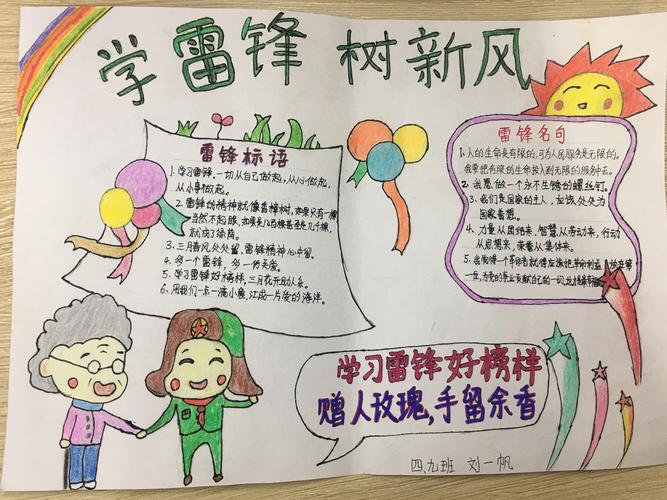 学雷锋 树新风
雷锋标语
1. 学习雷锋,一切从自己做起,从心做起,
从小事做起。
2. 雷锋的精神就像香樟树,如果只有一棵
当然不起眼,如果是几百棵甚至是几千棵,
就成了绿荫。
3. 三月春风处处留,雷锋精神心中留。
4. 多一个雷锋,多一份关爱。
5. 学习雷锋好榜样,三月花开助人乐。
6. 用我们一点一滴小爱,汇成一片爱的海洋。
雷锋名句
1. 人的生命是有限的,可为人民服务是无限的。
我要把有限的生命投入到无限的服务中去。
2. 我愿做一个永不生锈的螺丝钉。
3. 我们是国家的主人,应该处处为
国家着想。
4. 力量从团结来,智慧从劳动来,行动
从思想来,荣誉从集体来。
5. 我觉得一个革命者就得应该把革命利益放在第
一位,为党的事业贡献自己的一切,这才是最幸福
学习雷锋好榜样
赠人玫瑰,手留余香
四、九班 刘一帆